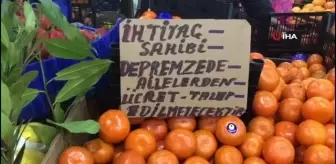 İHTİYAÇ—
SAHİBİ—
DEPREMZEDE—
AİLELERDEN—
ÜCRET-TALEP
EDİLMEYECEKTİR
İHA